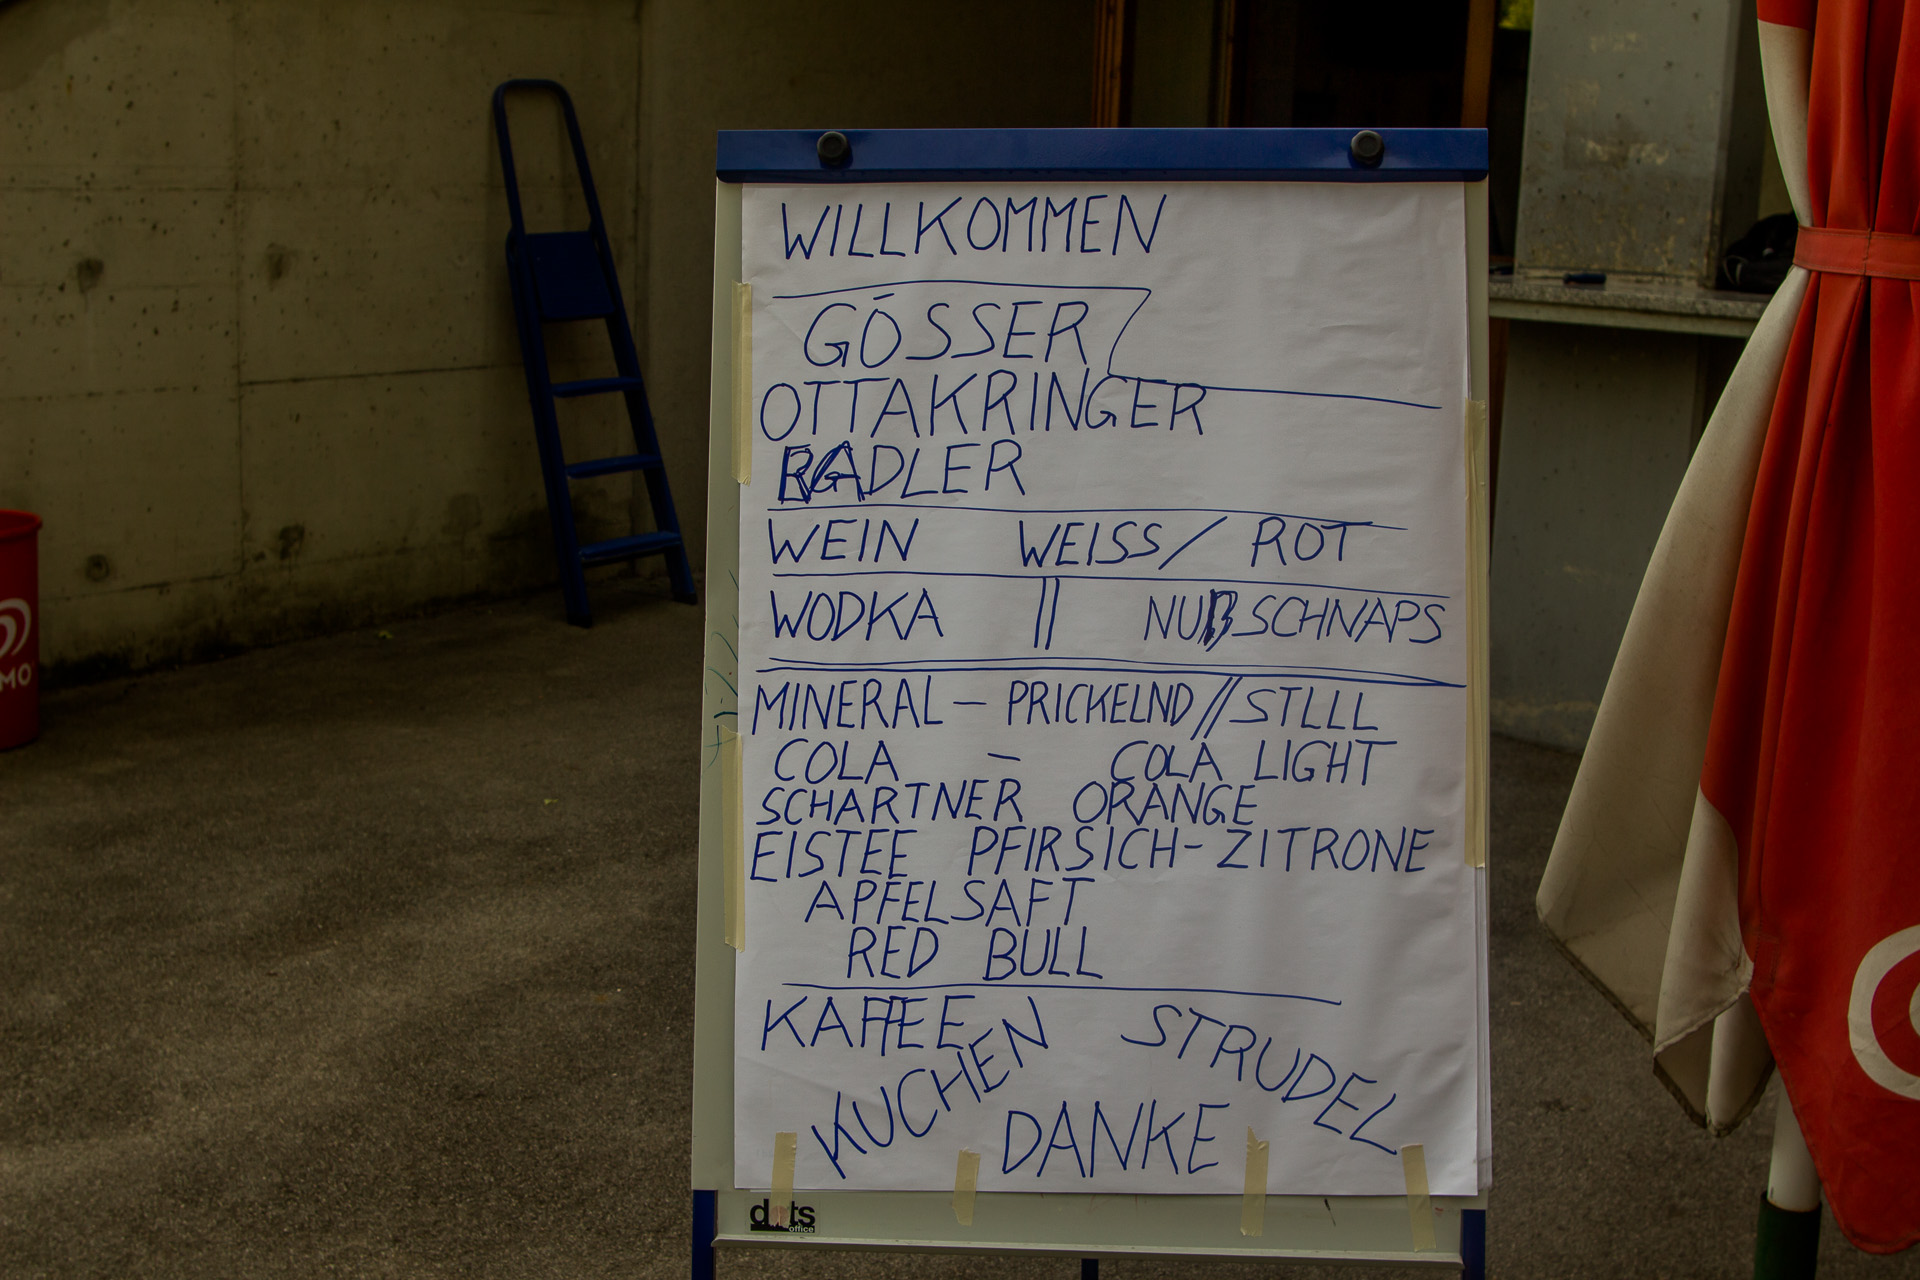 WILLKOMMEN
GÖSSER
OTTAKRINGER
RADLER
WEIN WEISS / ROT
WODKA || NUßSCHNAPS
MINERAL - PRICKELND // STLLL
COLA - COLA LIGHT
SCHARTNER ORANGE
EISTEE PFIRSICH-ZITRONE
APFELSAFT
RED BULL
KAFFEE STRUDEL
KUCHEN
DANKE
dots
office
MO